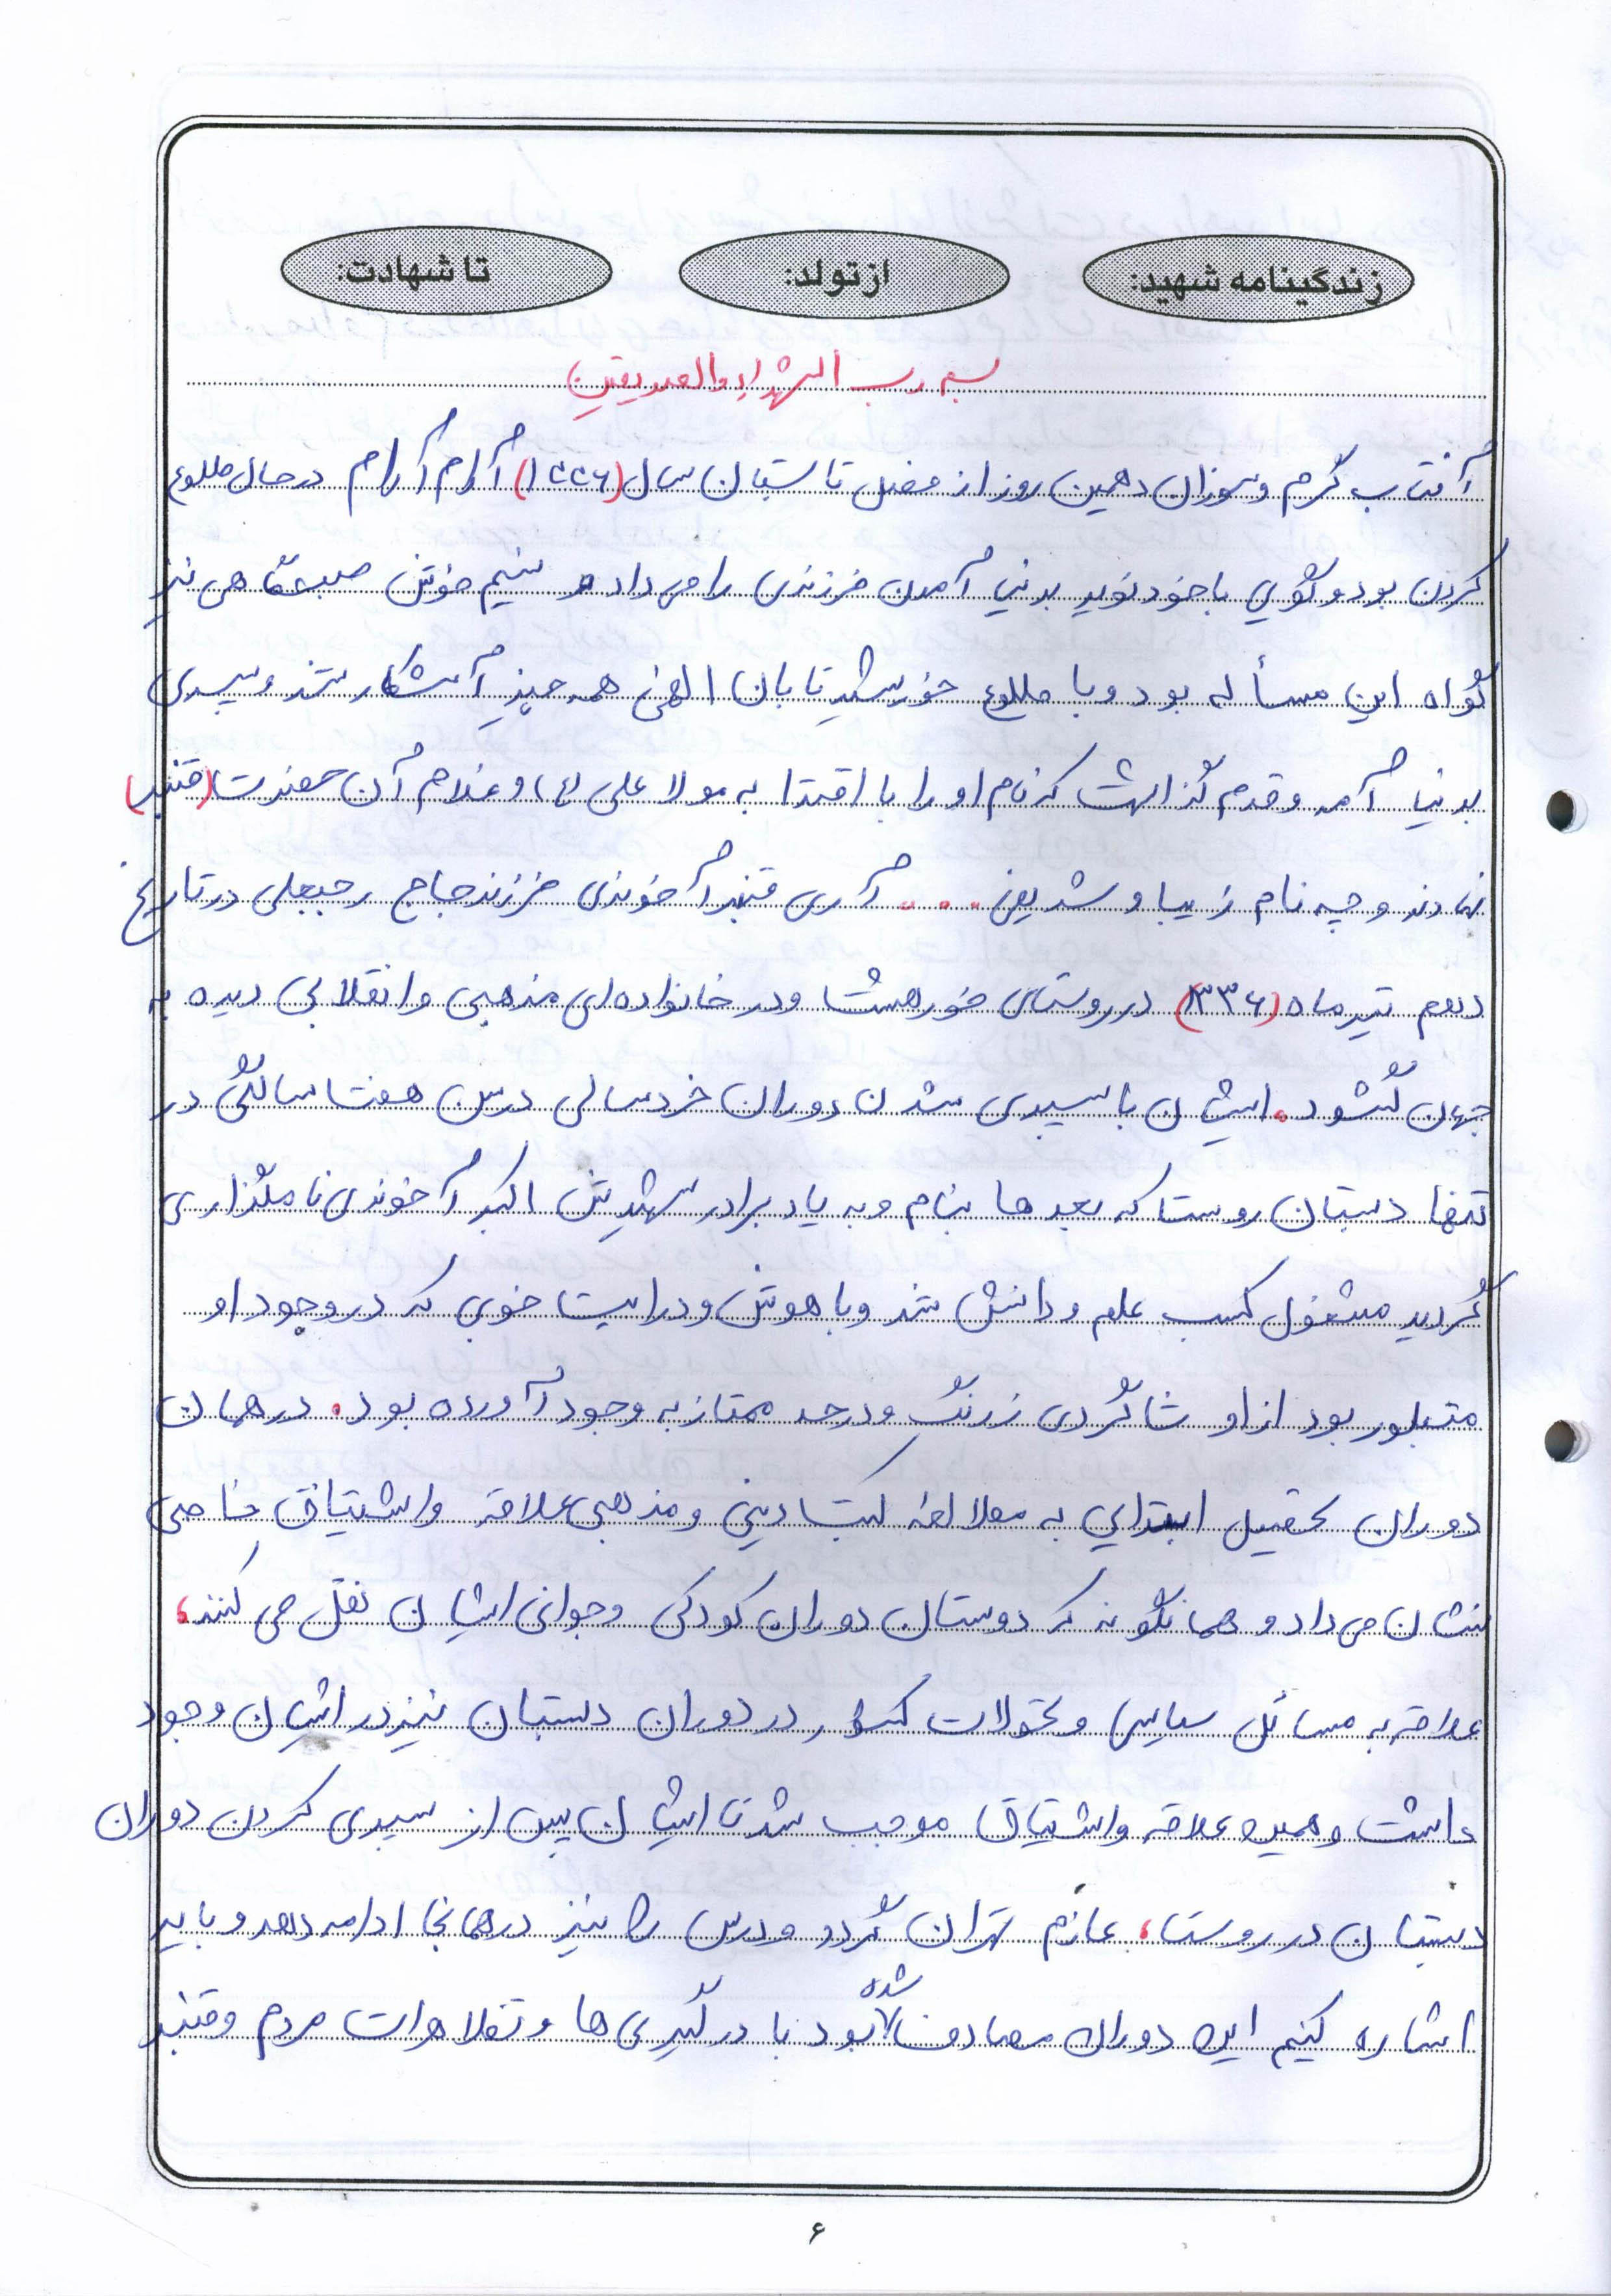 زندگینامه شهید: از تولد: تا شهادت:
بسم رب الشهداء والصدیقین
آفتاب گرم وسوزان دهمین روز از فصل تابستان سال (۱۳۳۶) آرام آرام در حال طلوع
کردن بود و گوئی با خود نوید بدنیا آمدن فرزندی را می داد و نسیم خوش صبحگاهی نیز
گواه این مسأله بود و با طلوع خورشید تابان الهی همه چیز آشکار شد و پسری
بدنیا آمد و قدم گذاشت که نام او را با اقتدا به مولا علی (ع) و غلام آن حضرت (قنبر)
نهادند و چه نام زیبا و شریفی .... آری قنبر آخوندی فرزند حاج رجبعلی در تاریخ
دهم تیرماه (۱۳۳۶) در روستای خورهشت و در خانواده ای مذهبی و انقلابی دیده به
جهان گشود. ایشان با سپری شدن دوران خردسالی در سن هفت سالگی در
تنها دبستان روستا که بعدها بنام و به یاد برادر شهیدش اکبر آخوندی نامگذاری
گردید مشغول کسب علم و دانش شد و با هوش و درایت خوبی که در وجود او
متبلور بود از او شاگردی زرنگ و در حد ممتاز به وجود آورده بود. در همان
دوران تحصیل ابتدایی به مطالعه کتب دینی و مذهبی علاقه و اشتیاق خاصی
نشان می داد و همانگونه که دوستان دوران کودکی و جوانی ایشان نقل می کنند،
علاقه به مسائل سیاسی و تحولات کشور در دوران دبستان نیز در ایشان وجود
داشت و همین علاقه و اشتیاق موجب شد تا ایشان پس از سپری کردن دوران
دبستان در روستا، عازم تهران گردد و درس را نیز در همانجا ادامه دهد و باید
اشاره کنیم این دوران مصادف شده بود با درگیری ها و تظاهرات مردم و قنبر
۶